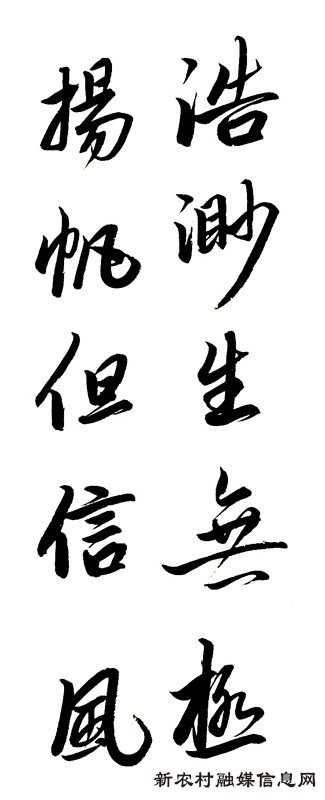 浩渺生無極
揚帆但信風
新农村融媒信息网